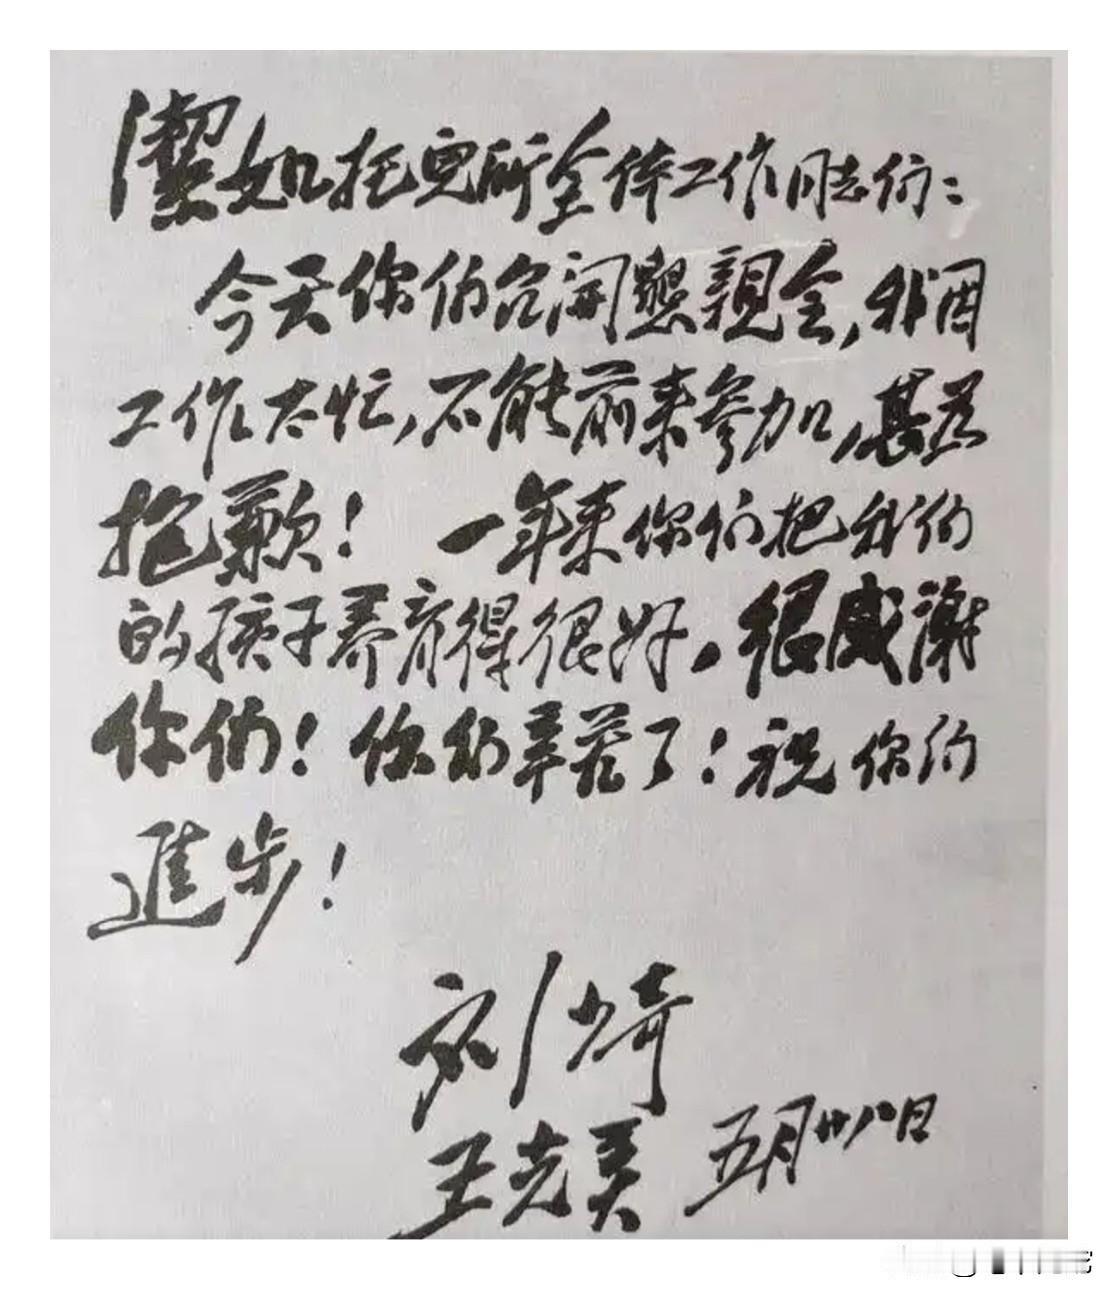 潔如托兒所全体工作同志们：
今天你们召開懇親会，我因
工作太忙，不能前来参加，甚为
抱歉！一年来你们把我们
的孩子养育得很好，很感謝
你们！你们辛苦了！祝你们
進步！
刘少奇
王光美 五月廿八日